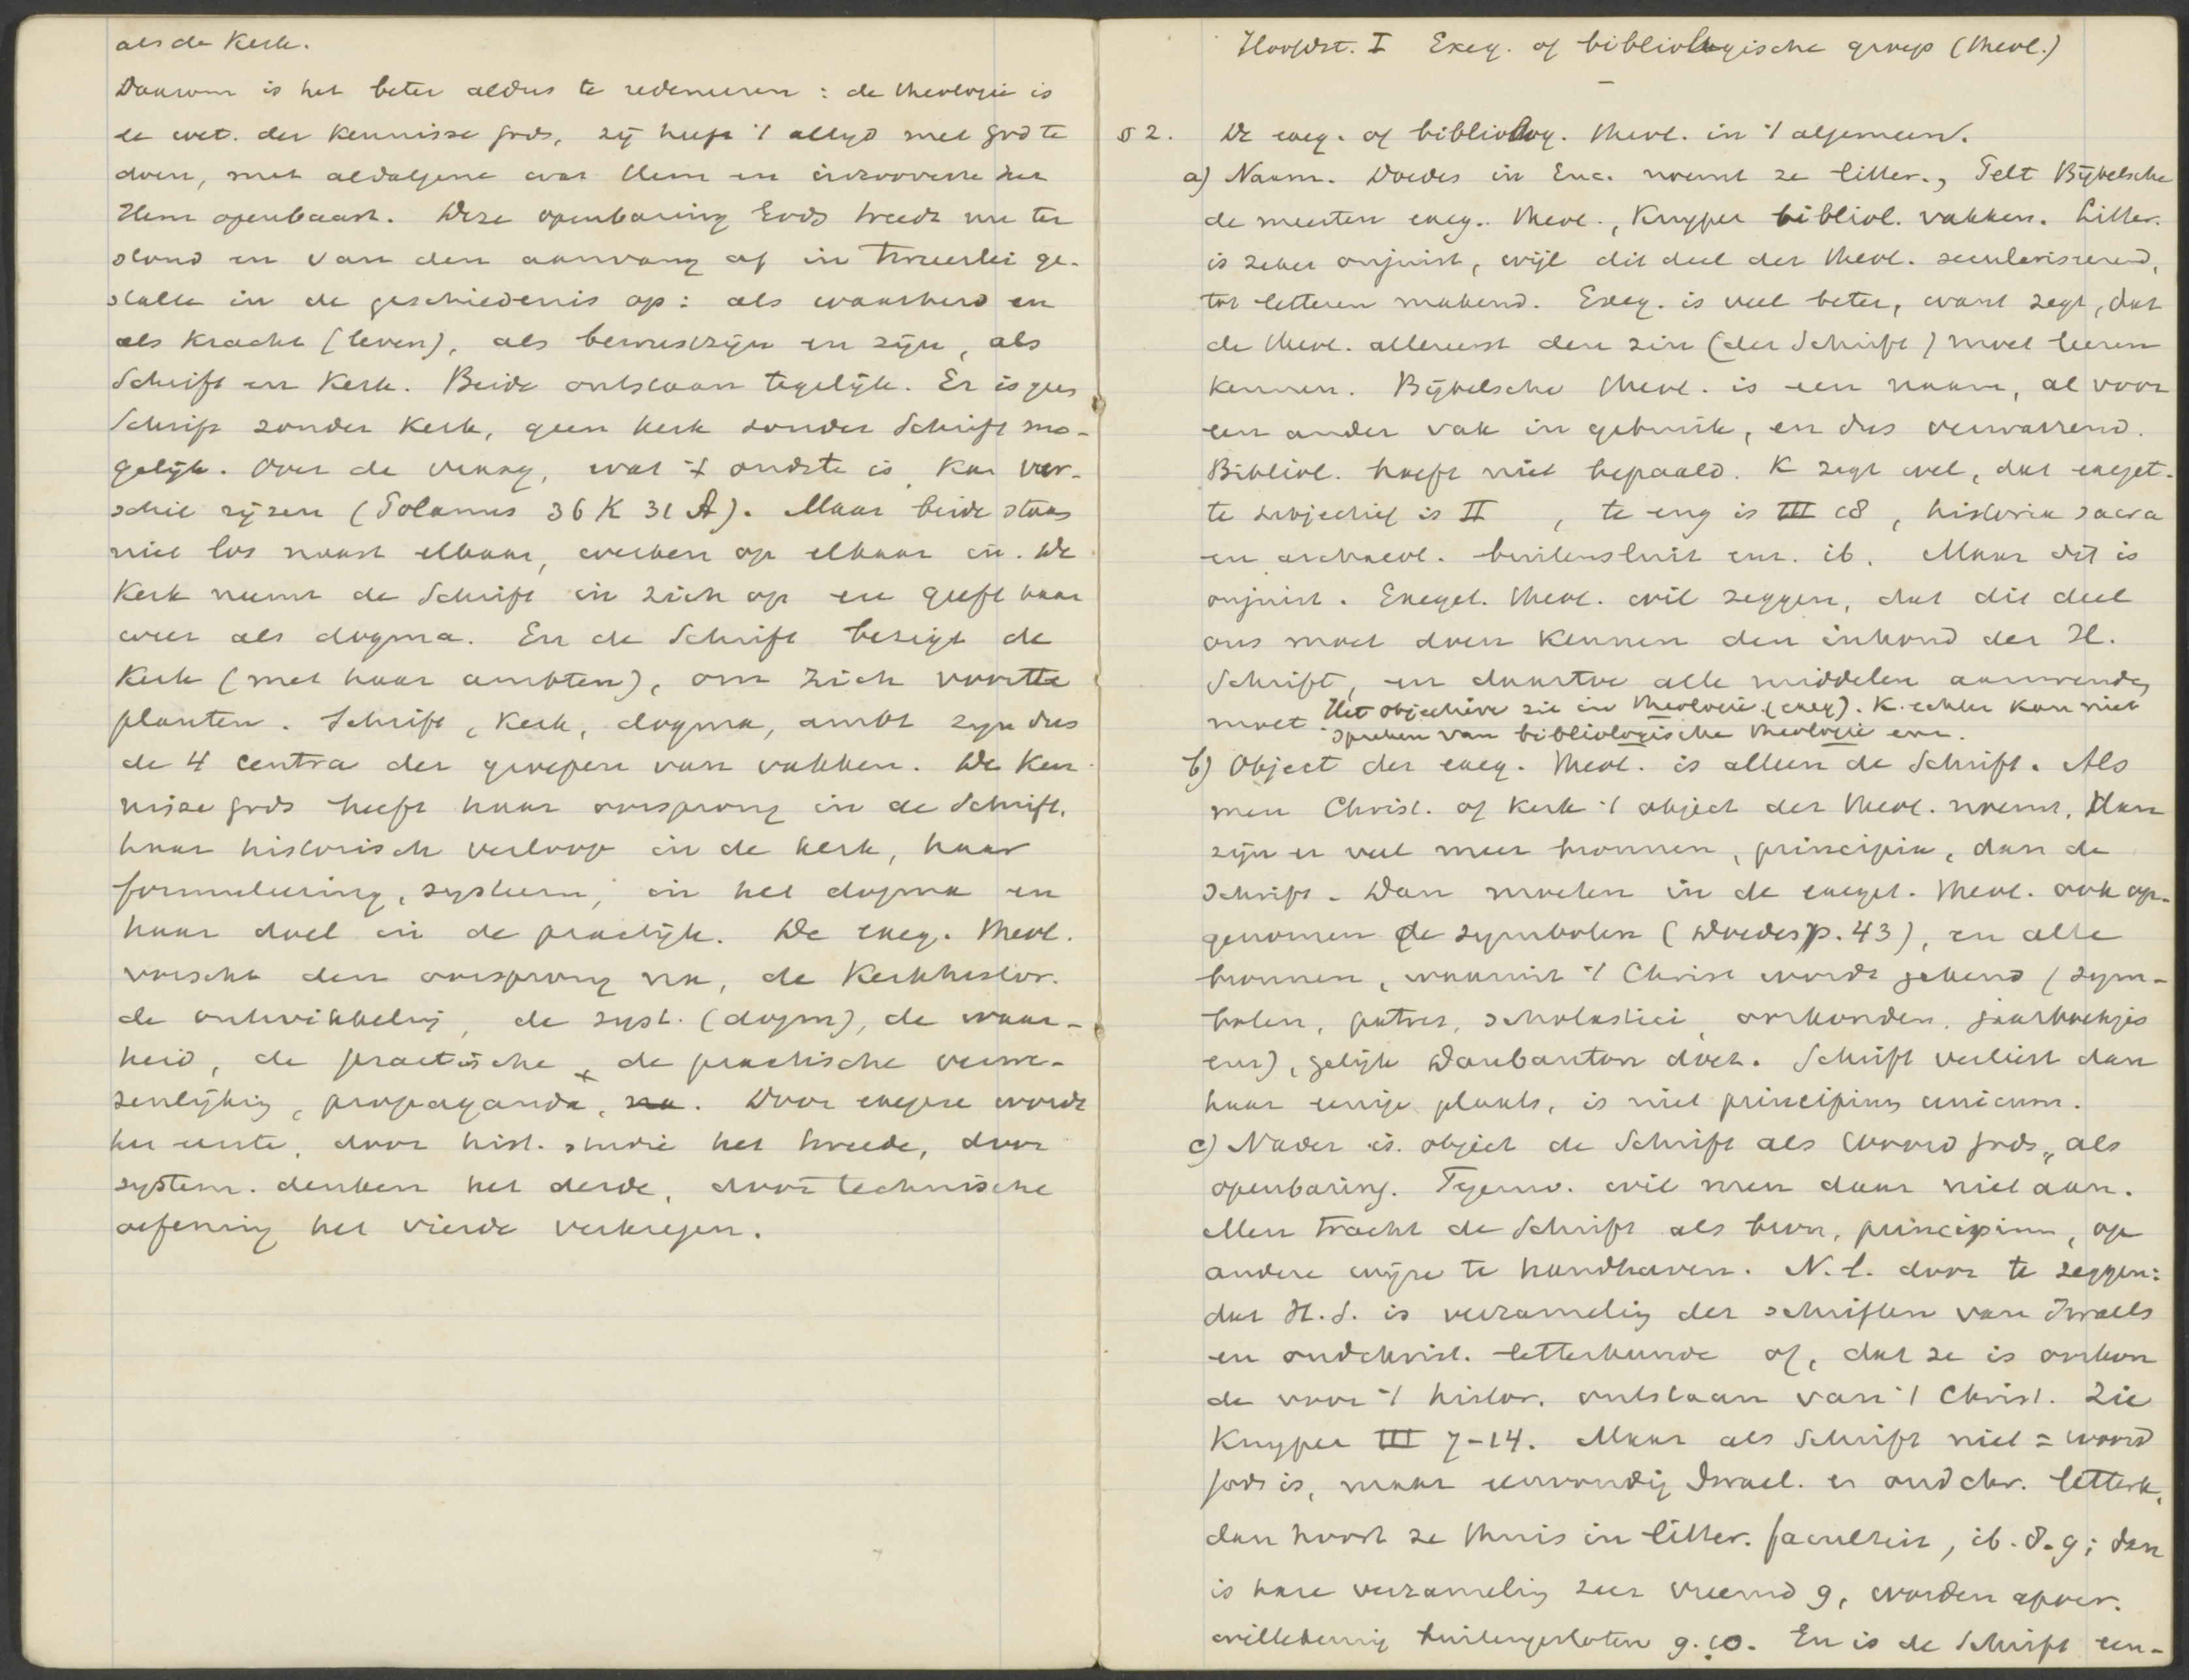 als de Kerk.
Daarom is het beter aldus te redeneeren : de theologie is
de wet. der kennisse Gods, zij heeft 't altijd met God te
doen, met aldatgene wat Hem en inzooverre het
Hem openbaart. Deze openbaring Gods treedt nu ter
stond en van den aanvang af in tweeërlei ge-
stalte in de geschiedenis op : als waarheid en
als Kracht (leven), als bewustzijn en zijn, als
Schrift en Kerk. Beide ontstaan tegelijk. Er is geen
Schrift zonder Kerk, geen kerk zonder Schrift mo-
gelijk. Over de vraag, wat 't oudste is, kan ver-
schil rijzen (Polanus 36 K 31 A). Maar beide staan
niet los naast elkaar, werken op elkaar in. De
Kerk neemt de Schrift in zich op en geeft haar
weer als dogma. En de Schrift bezigt de
Kerk (met haar ambten), om zich voort te
planten. Schrift, Kerk, dogma, ambt zijn dus
de 4 centra der groepen van vakken. De Ken-
nisse Gods heeft haar oorsprong in de Schrift,
haar historisch verloop in de kerk, haar
formuleering, systeem, in het dogma en
haar doel in de practijk. De exeg. theol.
vorscht den oorsprong na, de Kerkhistor.
de ontwikkeling, de syst. (dogm), de waar-
heid, de practische, de practische verwe-
zenlijking, propaganda, na. Door exegese wordt
het eerste, door hist. studie het tweede, door
system. denken het derde, door technische
oefening het vierde verkregen.
Hoofdst. I Exeg. of bibliologische groep (theol.)
§ 2. De exeg. of bibliolog. theol. in 't algemeen.
a) Naam. Doedes in Enc. noemt ze litter., Pelt Bijbelsche
de meesten exeg. theol., Kuyper bibliol. vakken. Litter.
is zeker onjuist, wijl dit deel der theol. seculariseerend,
tot letteren makend. Exeg. is veel beter, want zegt, dat
de theol. allereerst den zin (der Schrift) moet leeren
kennen. Bijbelsche theol. is een naam, al voor
een ander vak in gebruik, en dus verwarrend.
Bibliol. heeft niet bepaald. K zegt wel, dat exeget.
te subjectief is II , te eng is III 18, historia sacra
en archaeol. buitensluit enz. ib. Maar dit is
onjuist. Exeget. theol. wil zeggen, dat dit deel
ons moet doen kennen den inhoud der H.
Schrift, en daartoe alle middelen aanwenden
moet. Het objectieve zit in theologie (exeg). K. echter kan niet
spreken van bibliologische theologie enz.
b) Object der exeg. theol. is alleen de Schrift. Als
men Christ. of Kerk 't object der theol. noemt, dan
zijn er veel meer bronnen, principia, dan de
Schrift. Dan moeten in de exeget. theol. ook op-
genomen de symbolen (Doedes p. 43), en alle
bronnen, waaruit 't Christ wordt gekend (sym-
bolen, patres, scholastici, oorkonden, jaarboekjes
enz), gelijk Daubanton doet. Schrift verliest dan
haar eenige plaats, is niet principium unicum.
c) Nader is object de Schrift als Woord Gods, als
openbaring. Tegenw. wil men daar niet aan.
Men tracht de Schrift als bron, principium, op
andere wijze te handhaven. N.l. door te zeggen:
dat H.S. is verzameling der schriften van Israels
en oudchrist. letterkunde of, dat ze is oorkon
de voor 't histor. ontstaan van 't Christ. Zie
Kuyper III 7-14. Maar als Schrift niet = woord
Gods is, maar eenvoudig Israel. en oudchr. letterk.
dan hoort ze thuis in litter. faculteit, ib. 8.9; dan
is hare verzameling zeer vreemd 9, worden apocr.
willekeurig buitengesloten 9.10. En is de Schrift een-